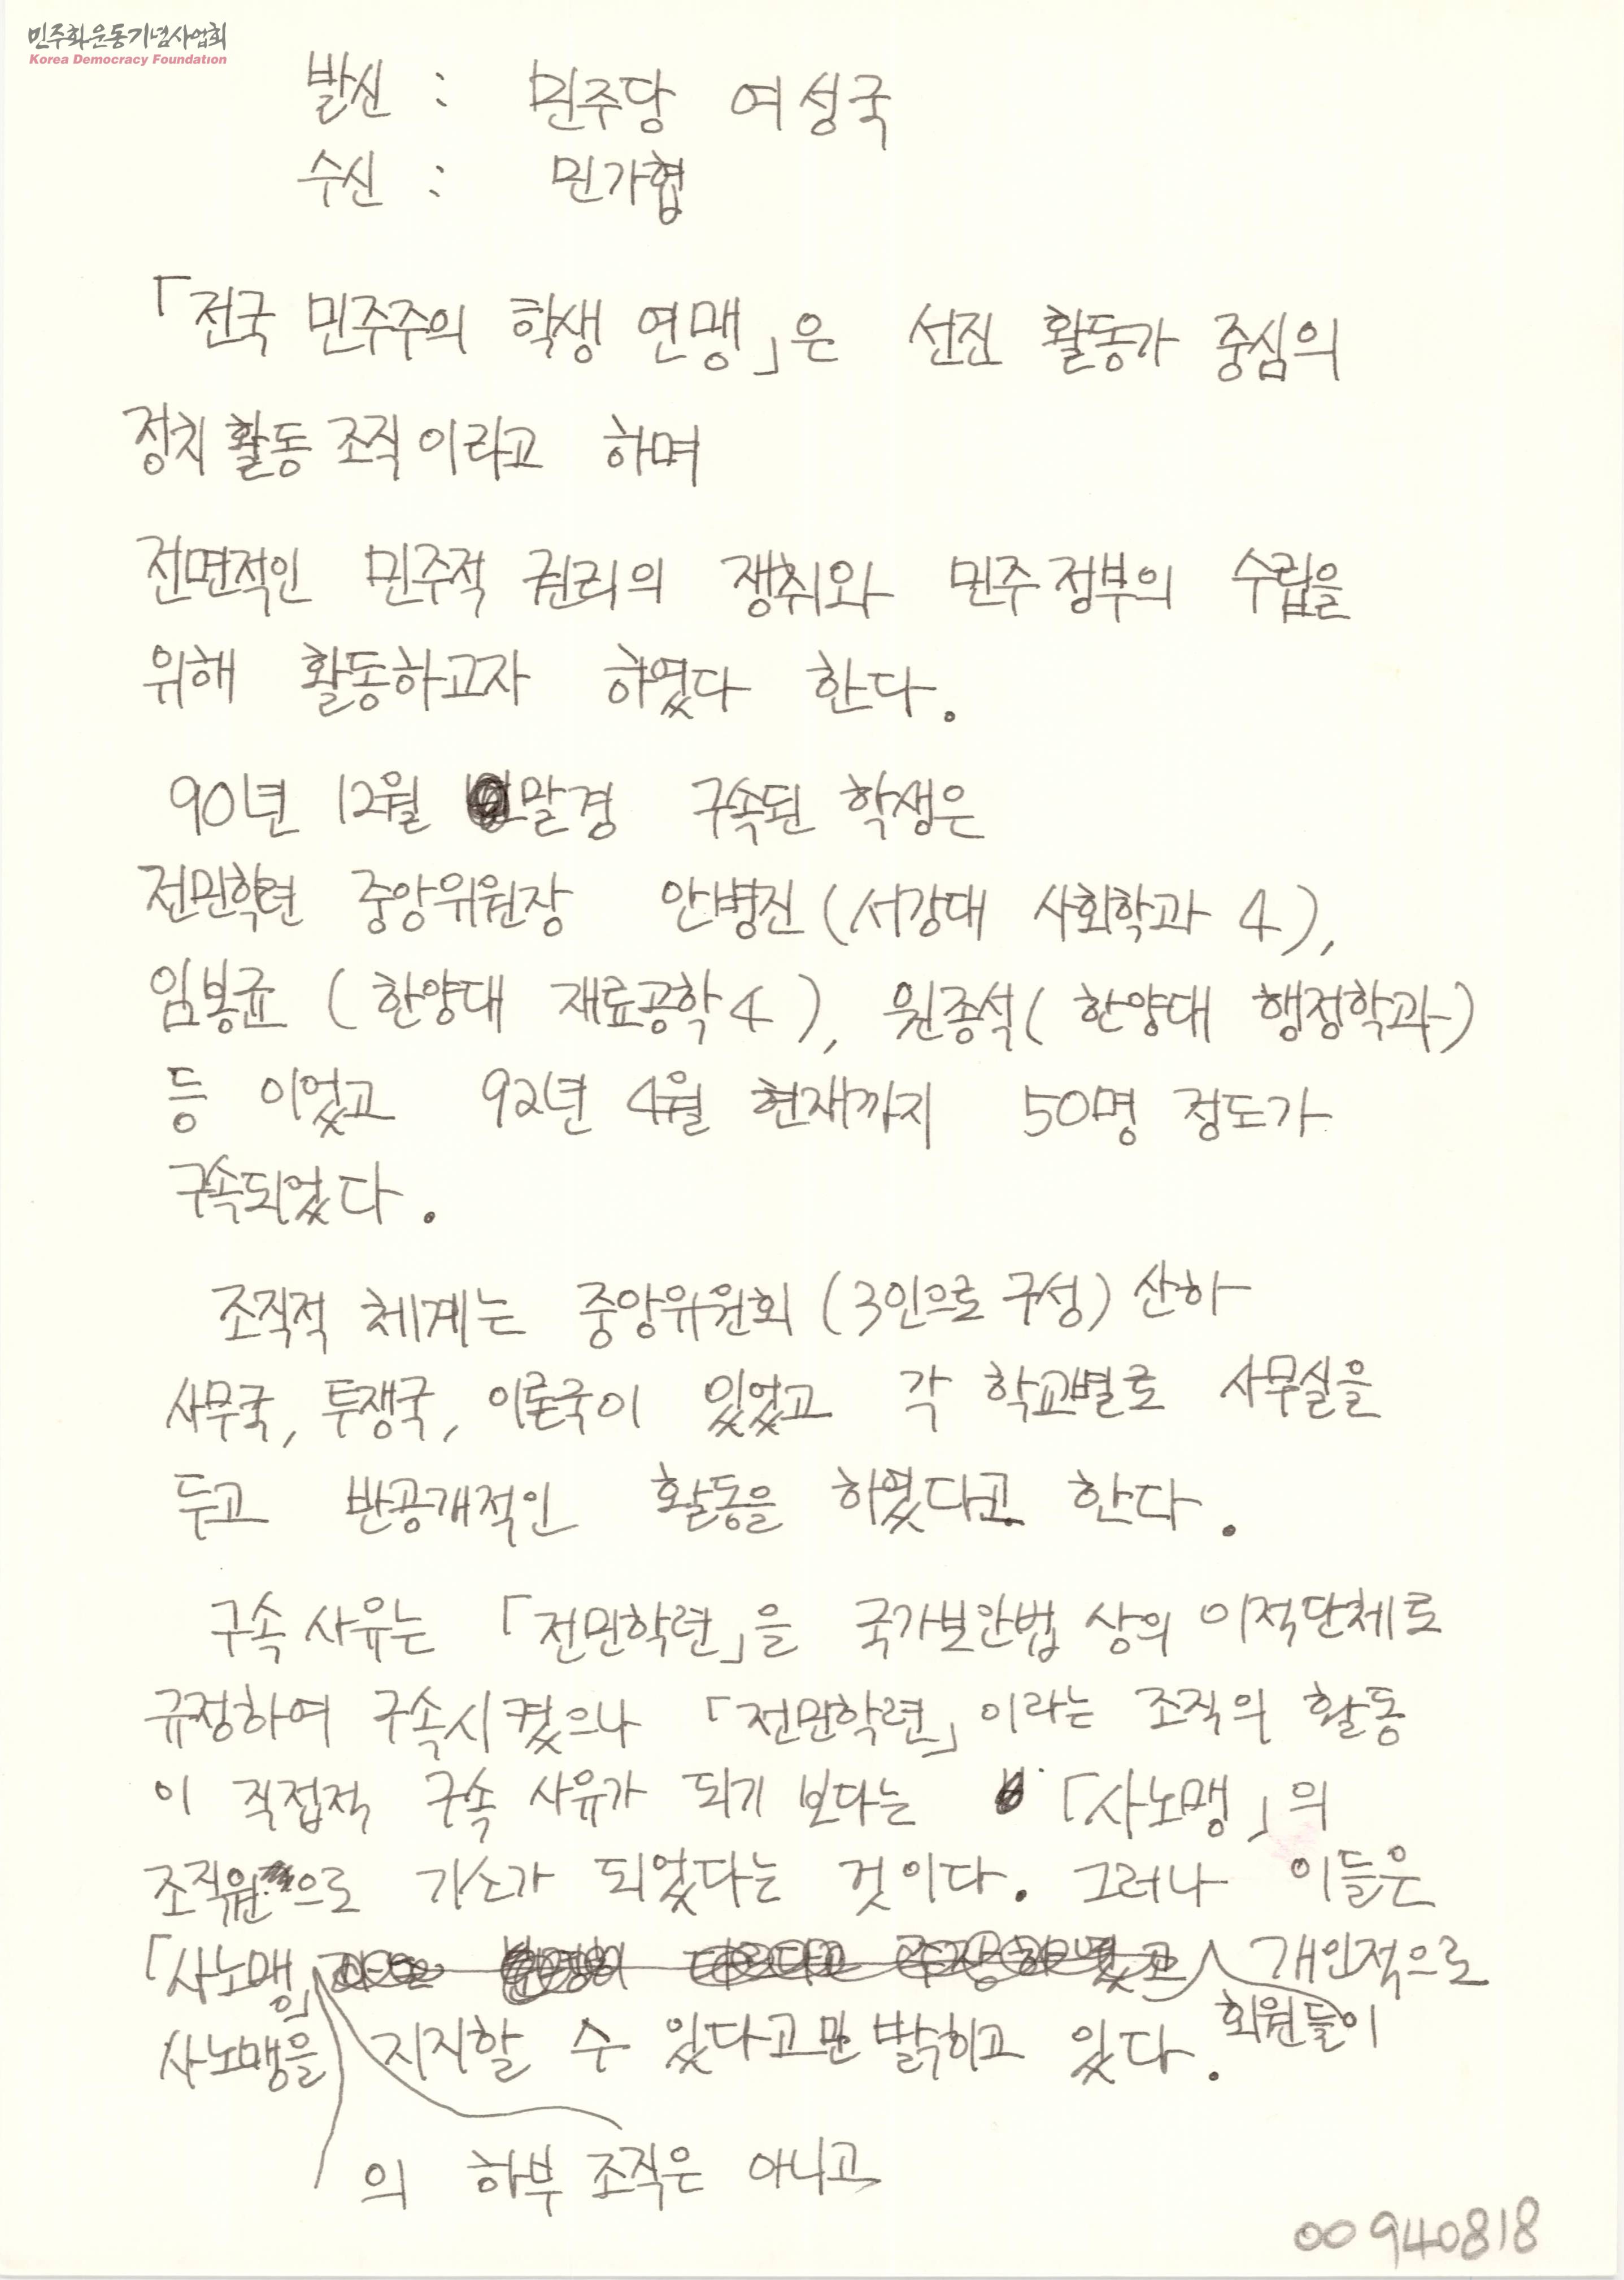 민주화운동기념사업회
Korea Democracy Foundation
발신 : 민주당 여성국
수신 : 민가협
「전국 민주주의 학생 연맹」은 선진 활동가 중심의
정치활동 조직이라고 하며
전면적인 민주적 권리의 쟁취와 민주정부의 수립을
위해 활동하고자 하였다 한다.
90년 12월 말경 구속된 학생은
전민학련 중앙위원장 안병진(서강대 사회학과 4),
임봉균(한양대 재료공학4), 원종석(한양대 행정학과)
등 이었고 92년 4월 현재까지 50명 정도가
구속되었다.
조직적 체계는 중앙위원회(3인으로 구성) 산하
사무국, 투쟁국, 이론국이 있었고 각 학교별로 사무실을
두고 반공개적인 활동을 하였다고 한다.
구속 사유는 「전민학련」을 국가보안법 상의 이적단체로
규정하여 구속시켰으나 「전민학련」이라는 조직의 활동
이 직접적 구속 사유가 되기 보다는 「사노맹」의
조직원으로 기소가 되었다는 것이다. 그러나 이들은
「사노맹 개인적으로
의 회원들이
사노맹을 지지할 수 있다고만 밝히고 있다.
의 하부 조직은 아니고
00940818